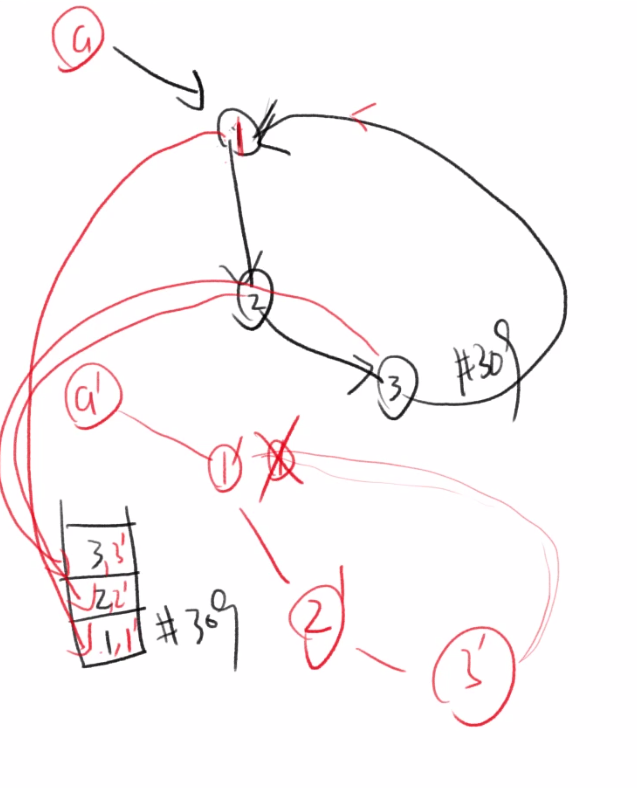 a
1
2
3
#309
a'
1'
2'
3'
3,3'
2,2'
1,1'
#309